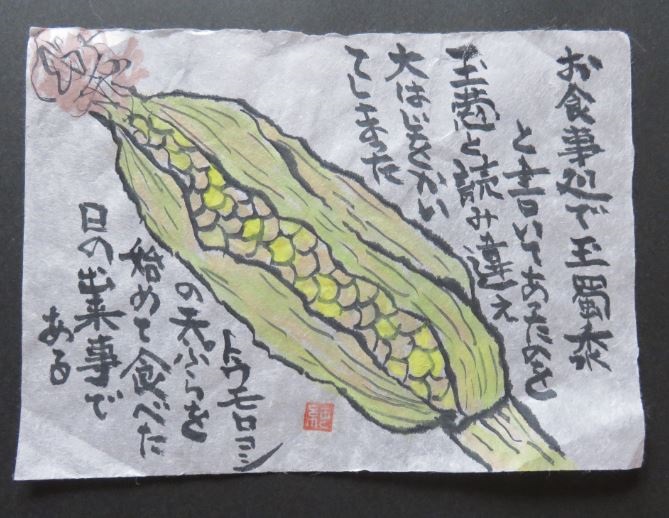 お食事処で玉蜀黍
と書いてあったのを
玉葱と読み違え
大はじをかい
てしまった
トウモロコシ
の天ぷらを
始めて食べた
日の出来事で
ある